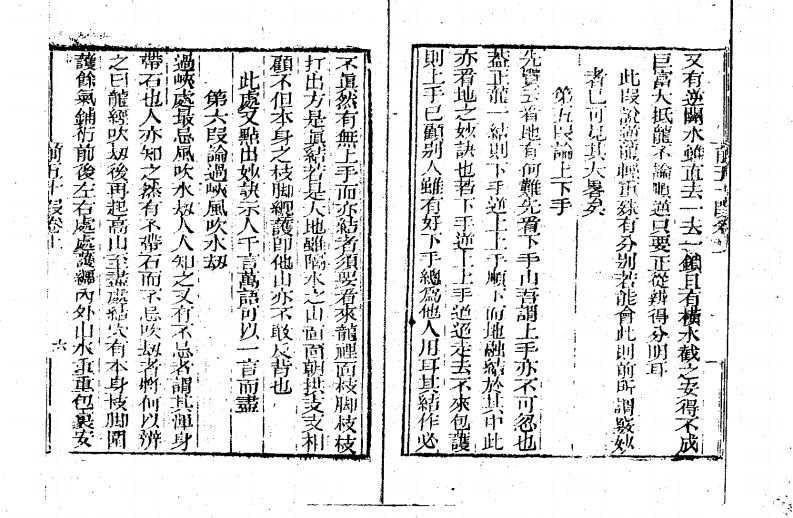 又有逆關水雖直去一去一鎖且有橫水截之安得不成
巨富大抵龍不論順逆只要正從辨得分明耳
此段說逆龍輕重殊有分别若能會此則前所謂竅妙
者已可見其大畧矣
第五段論上下手
先賢云看地有何難先看下手山吾謂上手亦不可忽也
蓋正龍一結則下手逆上上手順下而地融結於其中此
亦看地之妙訣也若下手逆上上手逆走去不來包護
則上手已顧别人雖有好下手總爲他人用耳其結作必
不真然有無上手而亦結者須要看來龍裡面枝脚枝枝
打出方是真結若是大地雖隔水之山面面朝拱支支相
顧不但本身之枝脚纏護即他山亦不敢反背也
此處又點出妙訣示人千言萬語可以一言而盡
第六段論過峽風吹水刼
過峽處最忌風吹水刼人人知之又有不忌者謂其渾身
帶石也人亦知之然有不帶石而不忌吹刼者將何以辨
之曰龍經吹刼後再起高山至盡處結穴有本身枝脚圍
護餘氣鋪衍前後左右處處護纏內外山水重重包裹安
前五十段卷上
六